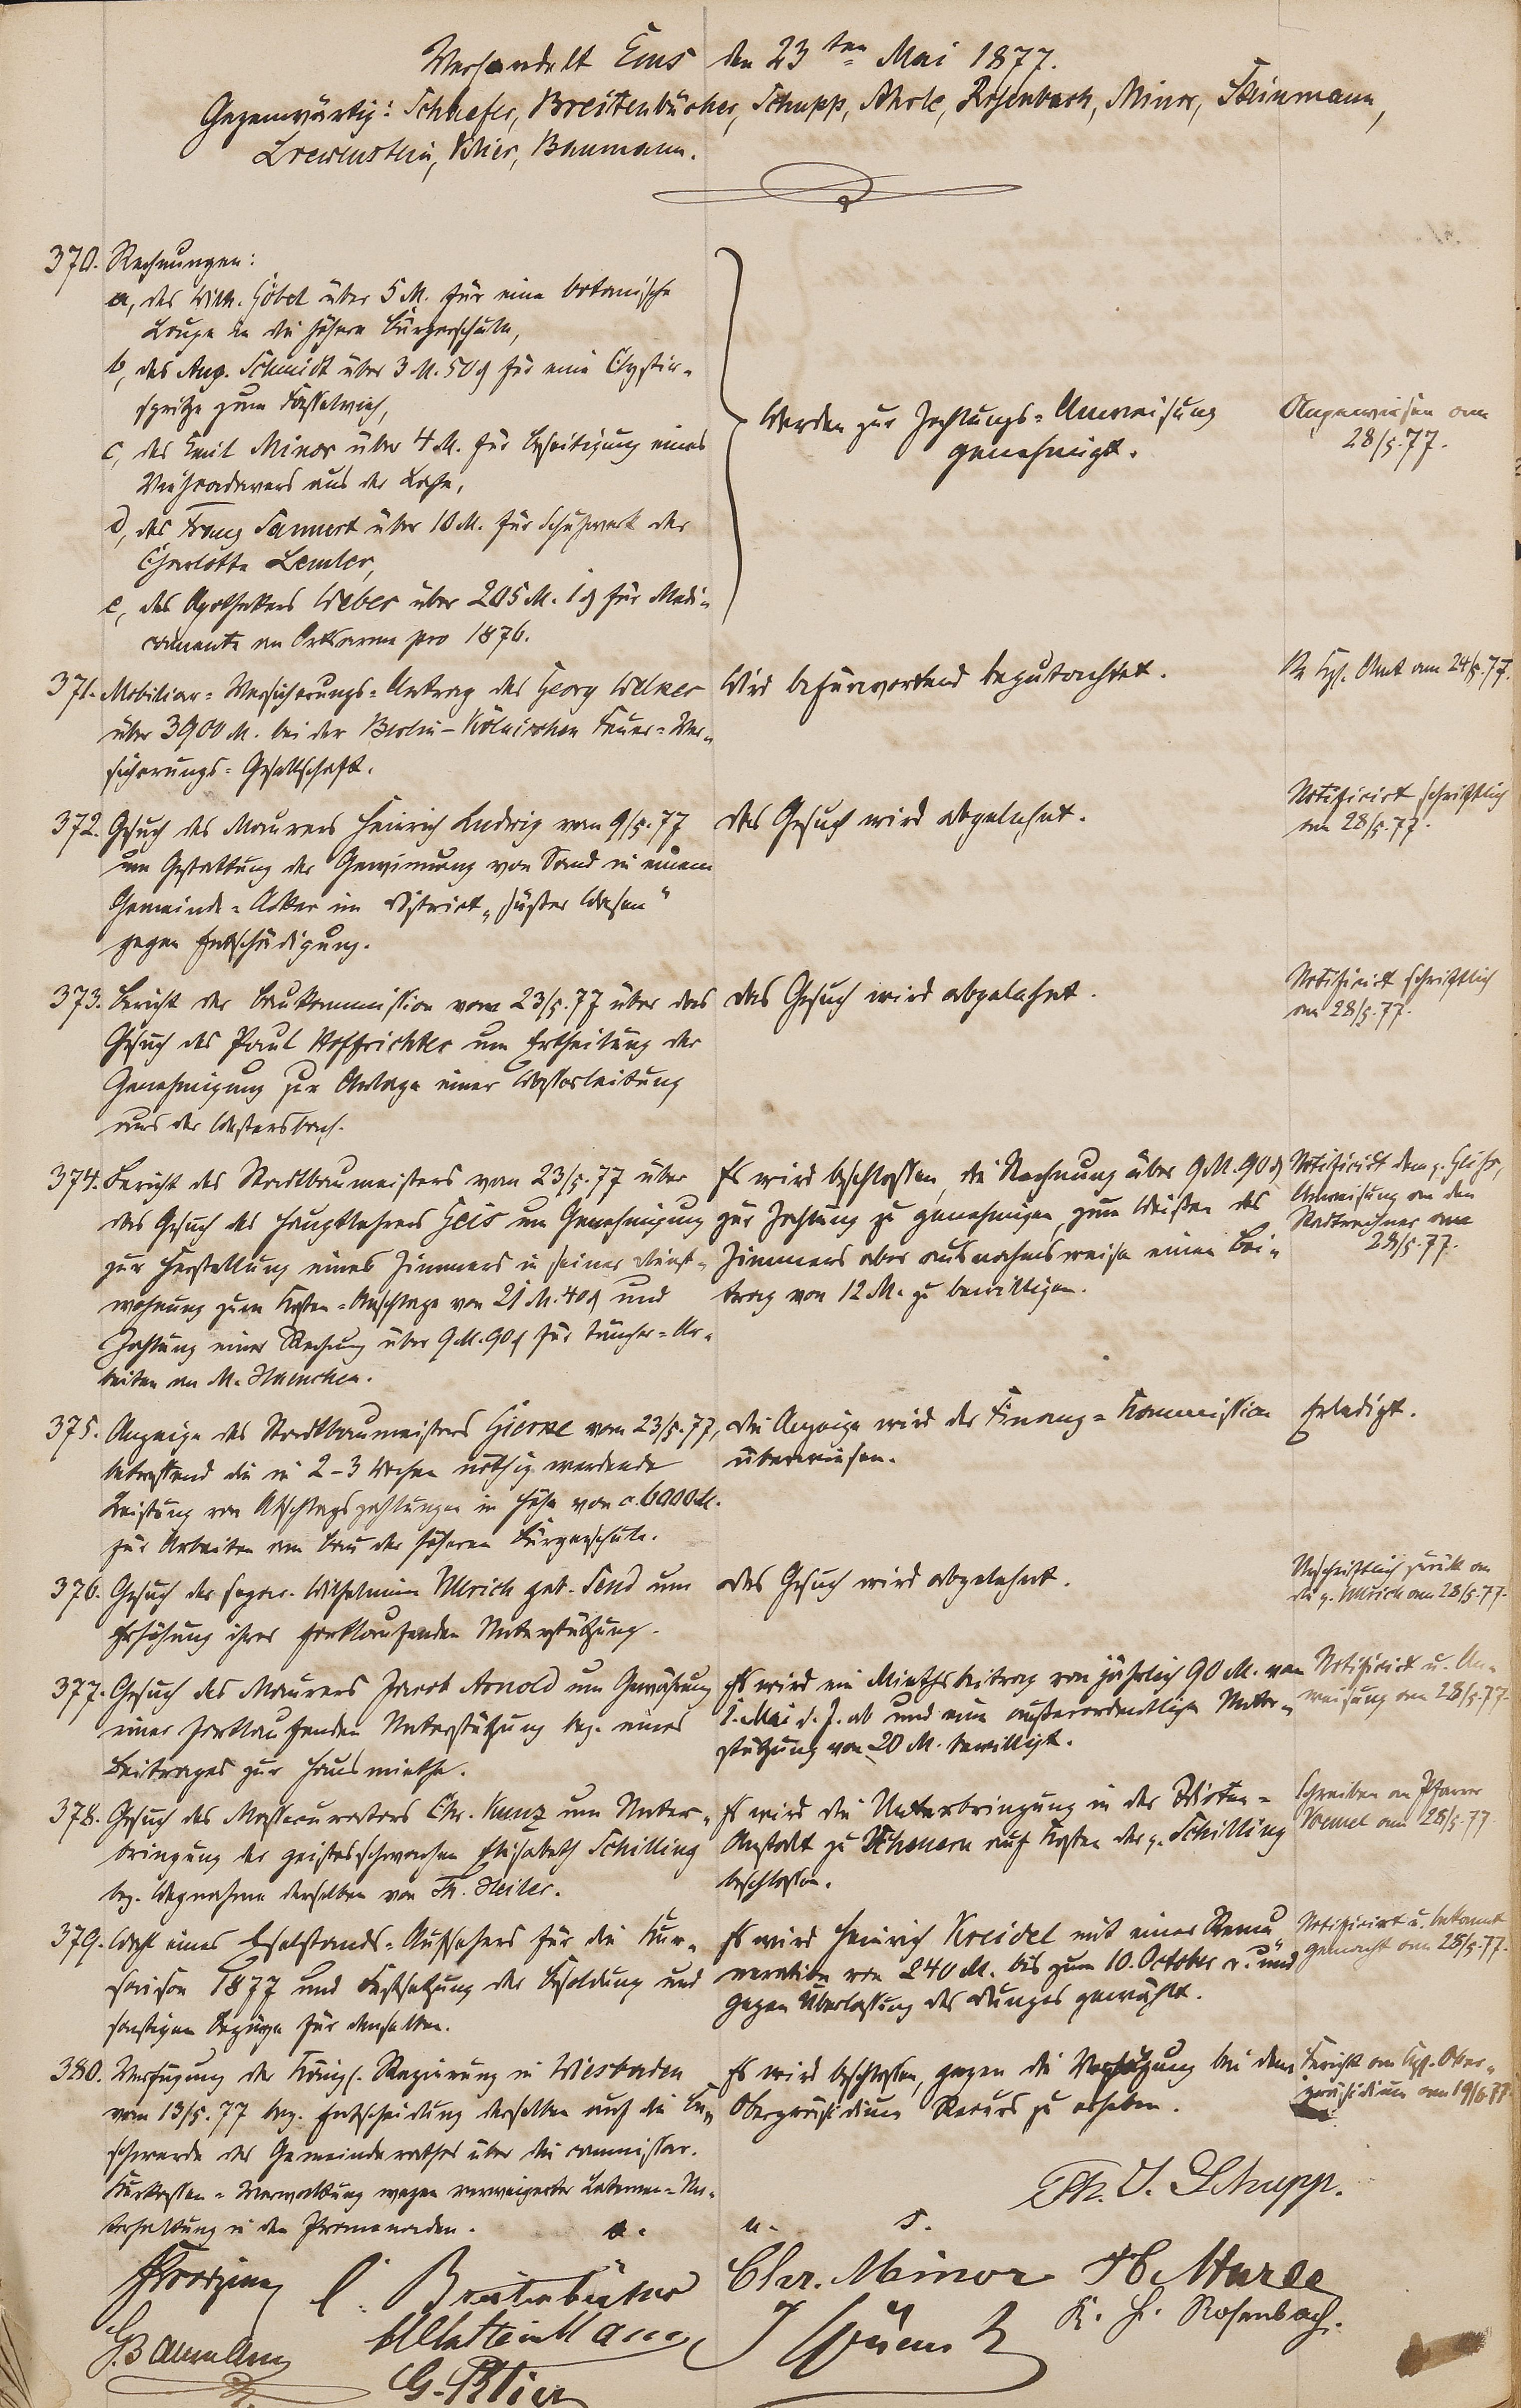 Verhandelt Ems den 23ten Mai 1877.
Gegenwärtig: Schaefer, Breitenbücher, Schupp, Rosenbach, Minor, Steinmann,
Loewenstein, Baumann.
370. Rechnungen:
a, des Wilh. Göbel über 5 M. für eine botanische
Loupe in die höhere Bürgerschule,
b, des Aug. Schmidt über 3 M. 50 ₰ für eine Clystir-
spritze zum Fasselvieh,
c, des Emil Minor über 4 M. für Beseitigung eines
Viehcadavers aus der Lahn,
d, des Franz Sannert über 10 M. für Schuhwerk der
Charlotte Lemler,
e, des Apothekers Weber über 205 M. 1 ₰ für Medi-
camente an Ortsarme pro 1876.
Werden zur Zahlungs-Anweisung
genehmigt.
Angewiesen am
28/5.77.
371. Mobiliar-Versicherungs-Antrag des Georg Welker
über 3900 M. bei der Berlin-Kölnischen Feuer-Ver-
sicherungs-Gesellschaft.
Wird befürwortend begutachtet.
Kgl. Amt am 24/5.77.
372. Gesuch des Maurers Heinrich Ludwig vom 9/5.77
um Gestattung der Gewinnung von Sand in einem
Gemeinde-Acker im District „süßer Wasen“
gegen Entschädigung.
Das Gesuch wird abgelehnt.
Notificirt schriftlich
am 28/5.77.
373. Bericht der Baukommission vom 23/5.77 über das
Gesuch des Paul Hoffrichter um Ertheilung der
Genehmigung zur Anlage einer Wasserleitung
aus der Westersbach.
Das Gesuch wird abgelehnt.
Notificirt schriftlich
am 28/5.77.
374. Bericht des Stadtbaumeisters vom 23/5.77 über
das Gesuch des Hauptlehrers Geis um Genehmigung
zur Herstellung eines Zimmers in seiner Dienst-
wohnung zum Kosten-Anschlage von 21 M. 40 ₰ und
Zahlung einer Rechnung über 9 M. 90 ₰ für Tüncher-Ar-
beiten an M. Hainchen.
Es wird beschlossen, die Rechnung über 9 M. 90 ₰
zur Zahlung zu genehmigen, zum Weißen des
Zimmers aber ausnahmsweise einen Bei-
trag von 12 M. zu bewilligen.
Notificirt dem
Anweisung an den
Stadtrechner am
28/5.77.
375. Anzeige des Stadtbaumeisters Gierke vom 23/5.77,
betreffend die in 2-3 Wochen nöthig werdende
Leistung von Abschlagszahlungen in Höhe von c. 6000 M.
für Arbeiten am Bau der höheren Bürgerschule.
Die Anzeige wird der Finanz-Kommission
überwiesen.
Erledigt.
376. Gesuch der separ. Wilhelmine Ullrich geb. Send um
Erhöhung ihrer fortlaufenden Unterstützung.
Das Gesuch wird abgelehnt.
Abschriftlich zurück an
die g. Ullrich am 28/5.77.
377. Gesuch des Maurers Jacob Arnold um Gewährung
einer fortlaufenden Unterstützung bez. eines
Beitrages zur Hausmiethe.
Es wird ein Miethsbeitrag von jährlich 90 M. vom
1. Mai d. J. ab und eine außerordentliche Unter-
stützung von 20 M. bewilligt.
Notificirt u. An-
weisung am 28/5.77.
378. Gesuch des Massecurators Chr. Kunz um Unter-
bringung der geistesschwachen Elisabeth Schilling
bez. Wegnahme derselben von Th. Heiler.
Es wird die Unterbringung in der Idioten-
Anstalt zu Scheuern auf Kosten der g. Schilling
beschlossen.
Schreiben an Pfarrer
Vomel am 28/5.77
379. Wahl eines Eselstands-Aufsehers für die Kur-
saison 1877 und Festsetzung der Besoldung und
sonstigen Bezüge für denselben.
Es wird Heinrich Kreidel mit einer Remu-
neration von 240 M. bis zum 10. October c. und
gegen Überlassung des Dunges gewählt.
Notificirt u. bekannt
gemacht am 28/5.77.
380. Verfügung der Königl. Regierung in Wiesbaden
vom 13/5.77 bez. Entscheidung derselben auf die Be-
schwerde des Gemeinderathes über die commissar.
Kurkassen-Verwaltung wegen verweigerter Laternen-Un-
terhaltung in den Promenaden.
Es wird beschlossen, gegen die Verfügung bei dem
Oberpräsidium Recurs zu erheben.
Bericht an Kgl. Ober-
präsidium am 19/6.77
a. u. s.
Th. J. Schupp.
C. Breitenbücher
Chr. Minor
K. H. Rosenbach.
G. Baumann